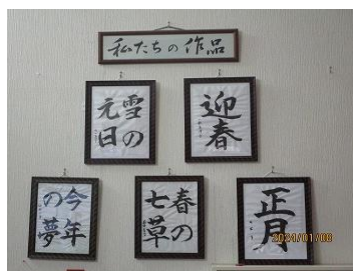 私たちの作品
雪の
元日
迎春
今年
の夢
春の
七草
正月
2021/01/08